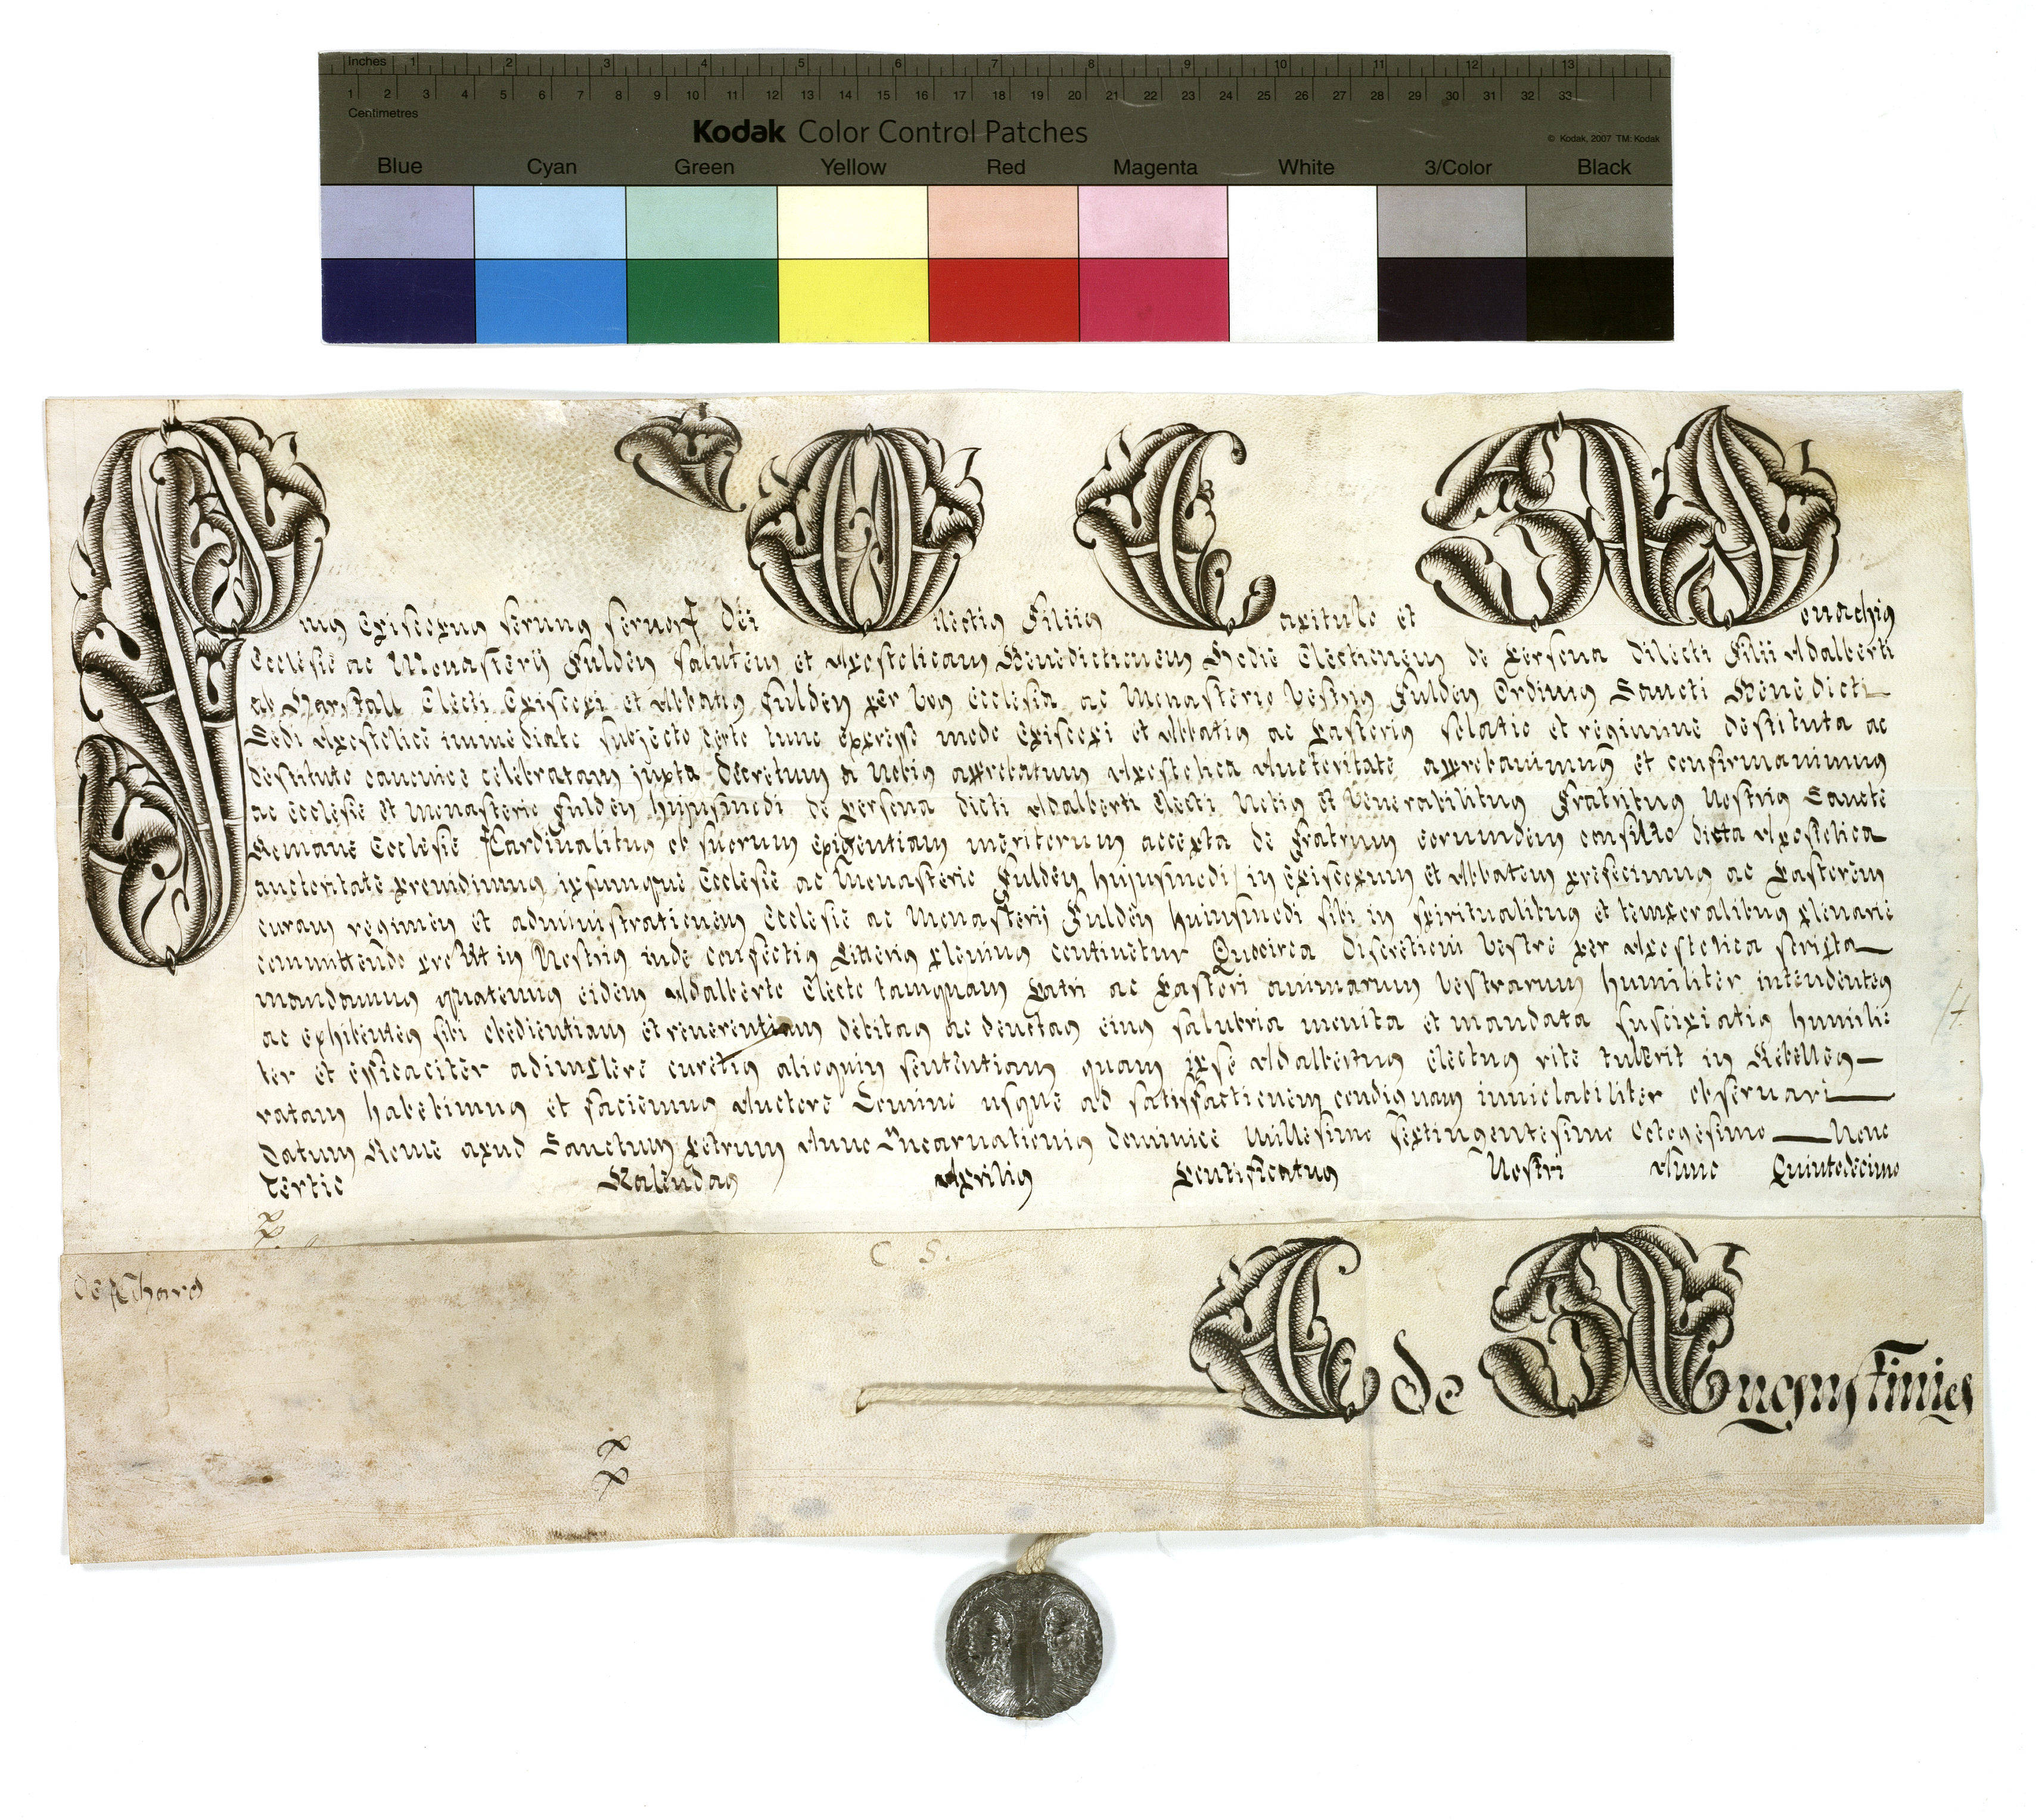 Inches 1 2 3 4 5 6 7 8 9 10 11 12 13
1 2 3 4 5 6 7 8 9 10 11 12 13 14 15 16 17 18 19 20 21 22 23 24 25 26 27 28 29 30 31 32 33
Centimetres
Kodak Color Control Patches
© Kodak, 2007 TM: Kodak
Blue Cyan Green Yellow Red Magenta White 3/Color Black
Pius Episcopus servus servor Dei Dilectis Filiis Capitulo et Monachis
Ecclesie ac Monasterij Fulden Salutem et Apostolicam Benedictionem Hodie Electionem de persona dilecti Filii Adalberti
ab Harstall Electi Episcopi et Abbatis Fulden per Vos Ecclesia ac Monasterio Vestris Fulden Ordinis Sancti Benedicti
Sedi Apostolice immediate subjecto certo tunc expresso modo Episcopi et Abbatis ac Pastoris solatio et regimine destituta ac
destituto canonice celebratam juxta Decretum a Nobis approbatum Apostolica Auctoritate approbavimus et confirmavimus
ac Ecclesie et Monasterio Fulden hujusmodi de persona dicti Adalberti Electi Nobis et Venerabilibus Fratribus Nostris Sancte
Romane Ecclesie Cardinalibus ob suorum exigentiam meritorum accepta de Fratrum eorumdem consilio dicta Apostolica
auctoritate providimus ipsumque Ecclesie ac Monasterio Fulden hujusmodi in Episcopum et Abbatem prefecimus ac Pastorem
curam regimen et administrationem Ecclesie ac Monasterij Fulden huiusmodi sibi in spiritualibus et temporalibus plenarie
committendo prout in Nostris inde confectis Litteris plenius continetur Quocirca Discretioni Vestre per Apostolica scripta
mandamus quatenus eidem Adalberto Electo tamquam Patri ac Pastori animarum Vestrarum humiliter intendentes
ac exhibentes sibi obedientiam et reverentiam debitas ac devotas eius salubria monita et mandata suscipiatis humili
ter et efficaciter adimplere curetis alioquin sententiam quam ipse Adalbertus Electus rite tulerit in Rebelles
ratam habebimus et faciemus Auctore Domino usque ad satisfactionem condignam inviolabiliter observari
Datum Rome apud Sanctum Petrum Anno Incarnationis dominice Millesimo septingentesimo octogesimo Nono
Tertio Kalendas Aprilis Pontificatus Nostri Anno Quintodecimo
C. S.
A de Augustinis